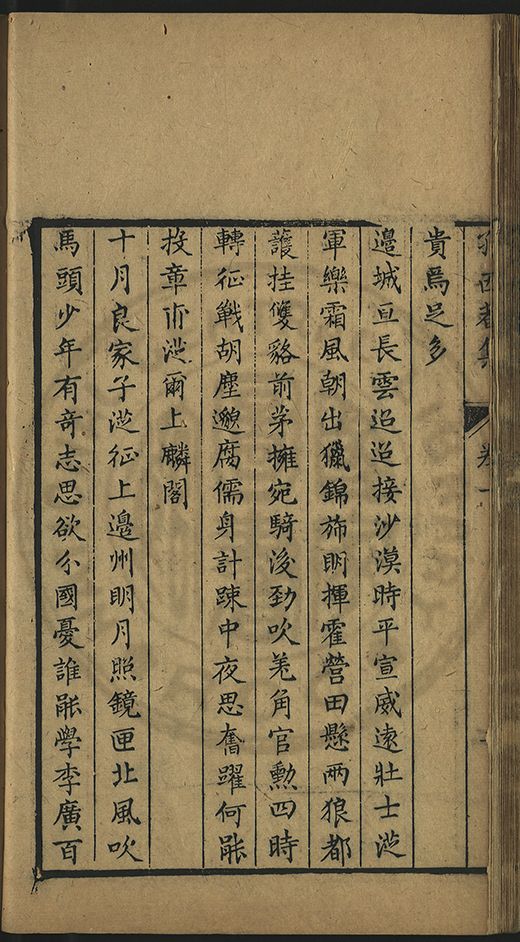 集 卷一
貴焉足多
邊城亘長雲迢迢接沙漠時平宣威遠壯士從
軍樂霜風朝出獵錦斾明揮霍營田懸兩狼都
護挂雙貉前茅擁宛騎後勁吹羌角官勳四時
轉征戰胡塵邈腐儒身計踈中夜思奮躍何能
投章甫從爾上麟閣
十月良家子從征上邊州明月照鏡匣北風吹
馬頭少年有奇志思欲分國憂誰能學李廣百